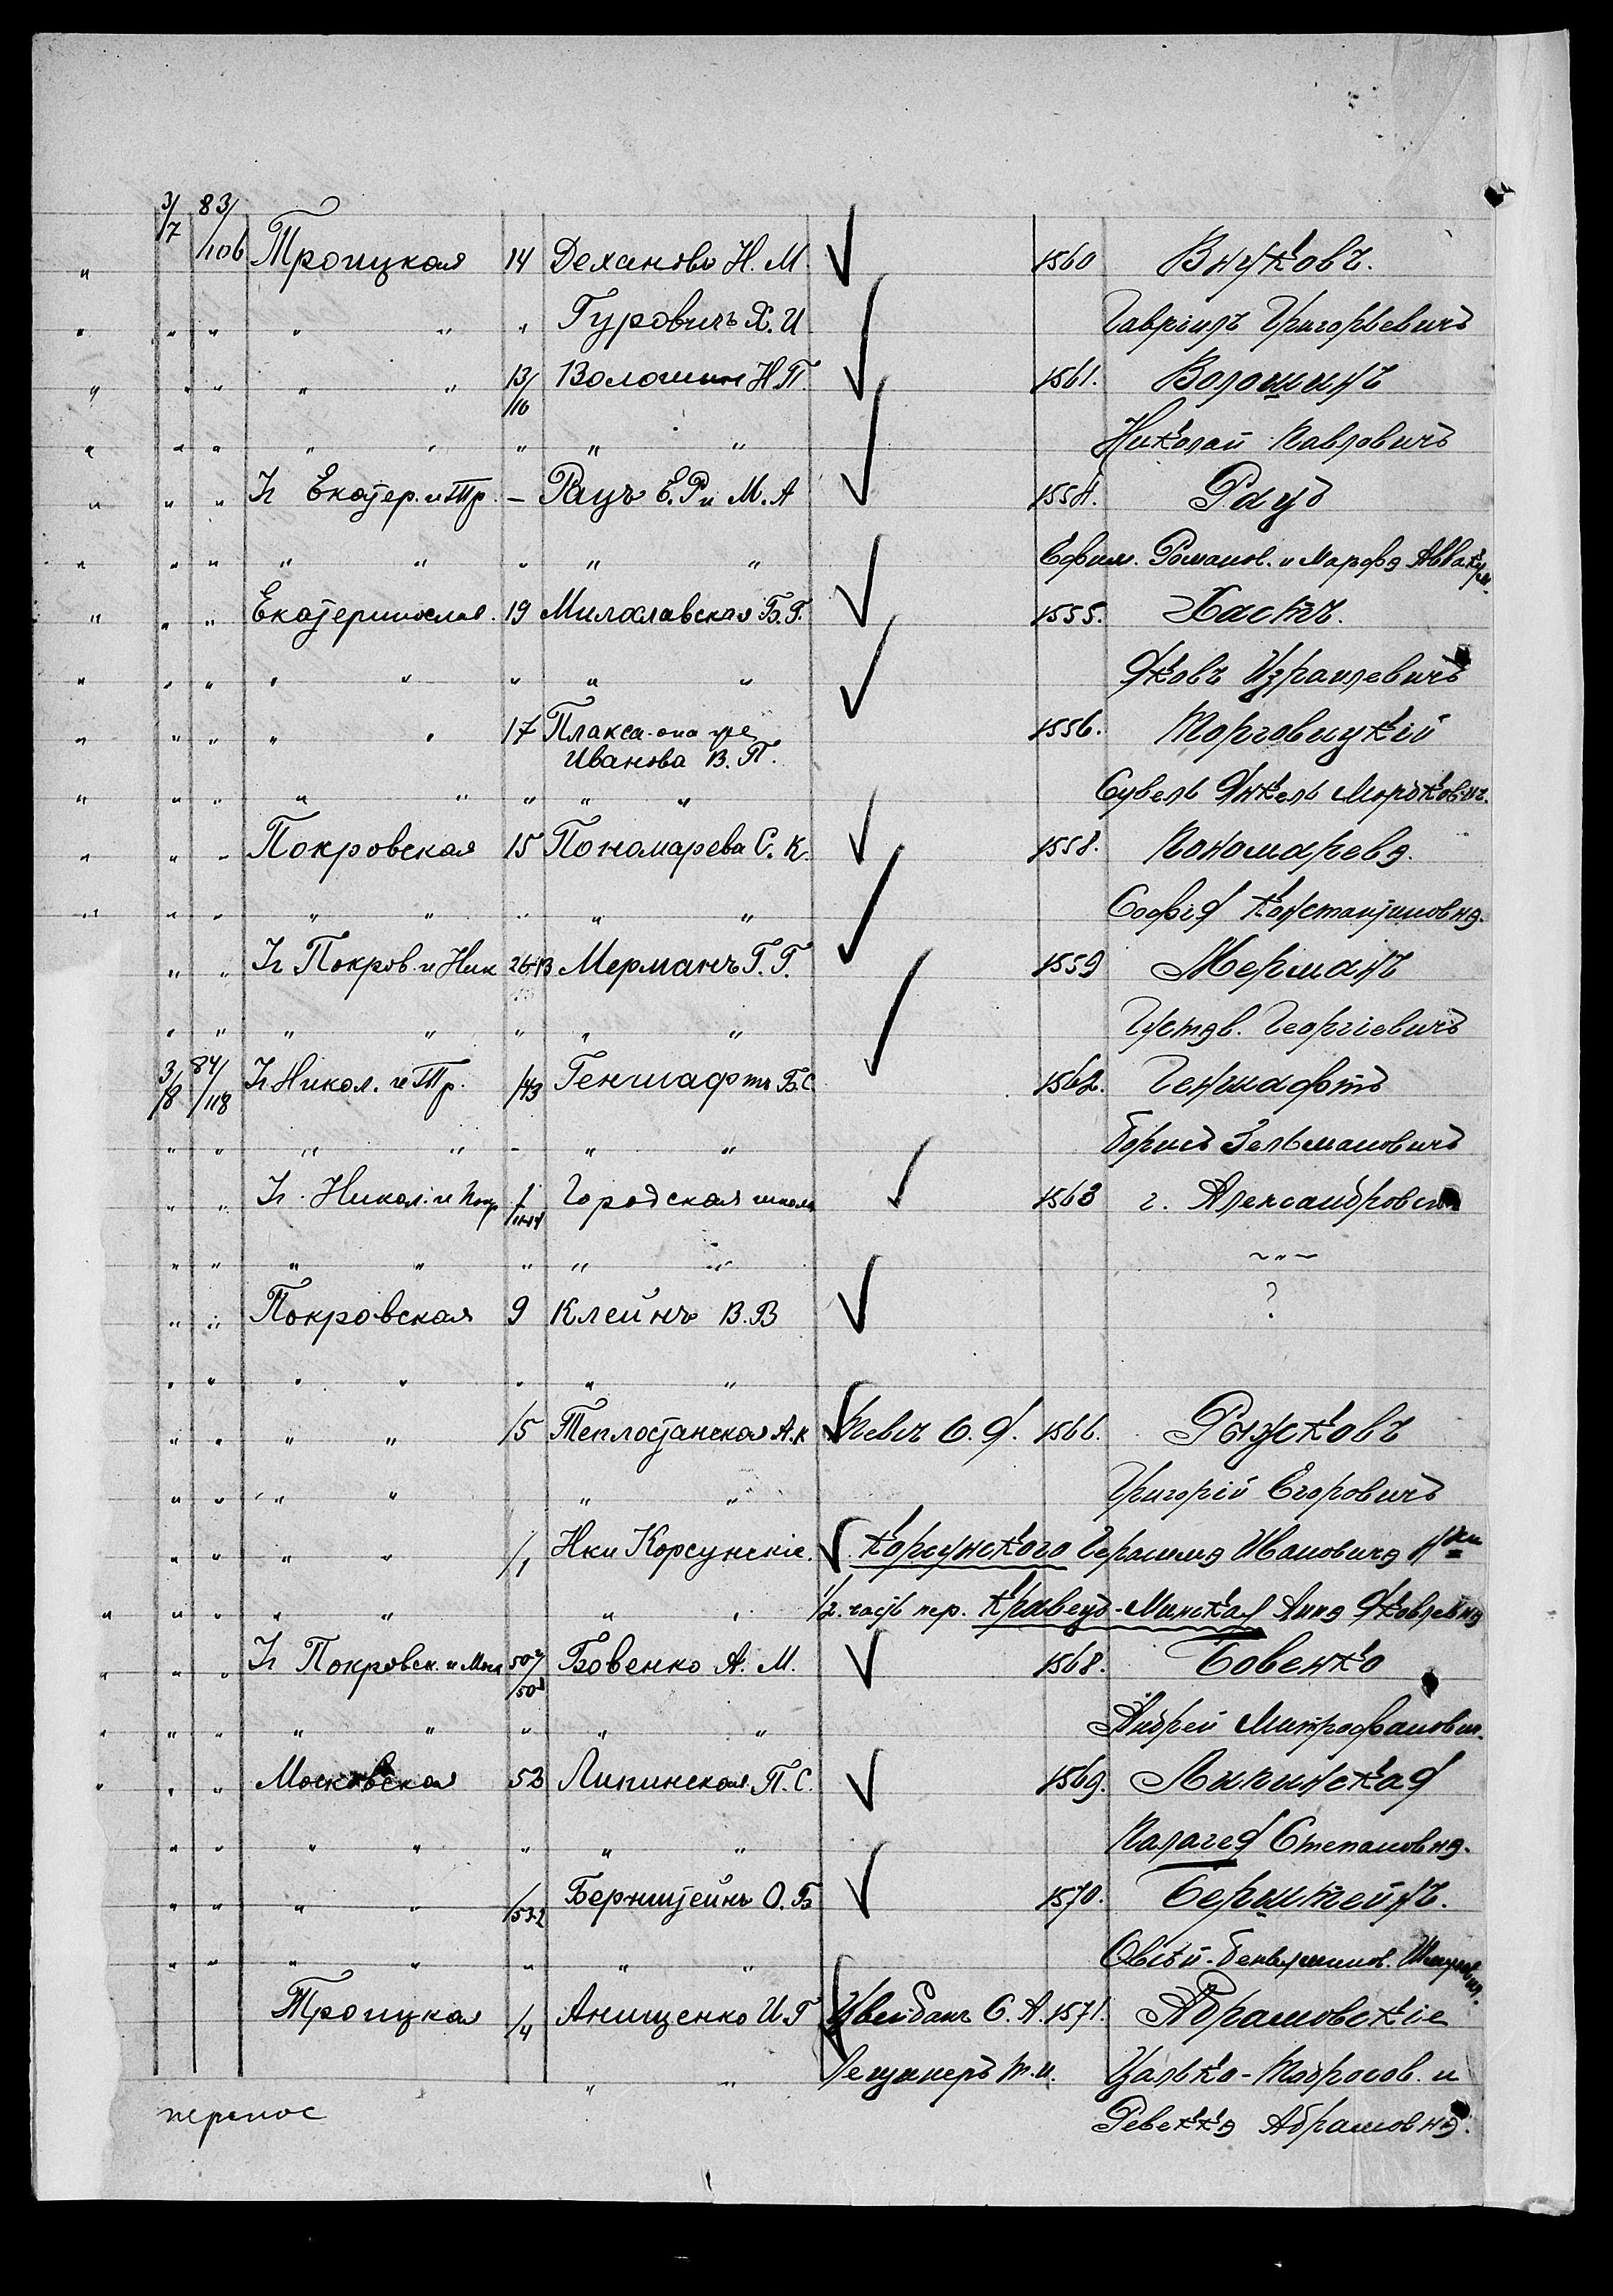 3/7 83/106 Троицкая 14 Деханова Н. М. 1560 Внуковъ.
" " " " " " Гуровичъ Х. И Гавріилъ Григорьевичъ
" " " " " 13/16 Волошин Н П. 1561. Волошинъ
" " " " " " " " Николай Павловичъ
" " " Уг Екатер. и Тр. – Рауъ Е. Р и М. А 1554. Рауъ
" " " " " " " " Ефим. Романов. и Марфа Аввакум.
" " " Екатеринослав. 19 Милославская Б. Г. 1555. Хастъ.
" " " " " " " " Яковъ Израилевичъ
" " " " " 17 Плакса-она же 1556. Торговицкій
Иванова В. П.
" " " " " " " " Сувель Янкель Мордковичъ.
" " " Покровская 15 Пономарева С. К. 1558. Пономарева.
" " " " " " " " Софія Константиновна.
" " Уг Покров. и Ник 26-13 Мерманъ Г. Г. 1559 Мерманъ
" " " " " " " Густав. Георгіевичъ
3/8 84/118 Уг Никол. и Тр. /43 Геншафтъ Б.С. 1562. Геншафтъ
" " " " - " " Борисъ Зельмановичъ
" " Уг. Никол. и Покр 1/11-14 Городская школа 1563 г. Александровск
" " " " " " " ~"~
" " Покровская 9 Клейнъ В. В ?
" " " " " " "
" " " " /5 Теплостанская А. К О. Я. 1566. Рыжковъ
" " " " " " Григорій Егоровичъ
" " " " /1 Нки Корсунскіе. Корсунского Герасима Ивановича Нки
" " " " " " " 1/2. часть пер. Кравецъ-Минская Анна Яковлевна
" " " Уг Покровск. и Моск 50 /50 Бовенко А. М. 1568. Бовенко
" " " " " " " " Андрей Митрофанович.
" " " Московская 53 Липинская П. С. 1569. Липинская
" " " " " " " Палагея Степановна.
" " " " /53-2 Бернштейнъ О. Б 1570. Берштейнъ.
" " " " " " " Овсѣй-Беньяминов.
Троицкая /4 Анищенко И. Г Цвейбахъ С. А. 1571. Абрамовскіе
" " Лещинеръ М. И. Цалько-Тодросов. и
перенос Ревекка Абрамовна.